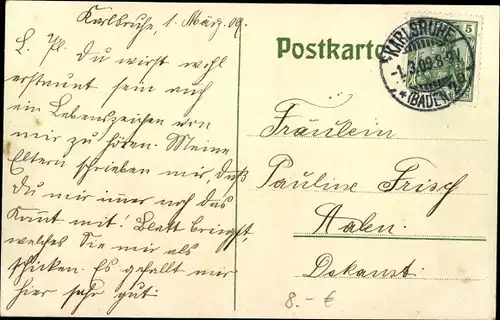 Karlsruhe, 1. März 09.
L. Pl. Du wirst wohl
erstaunt sein auch
ein Lebenszeichen von
mir zu hören. Meine
Eltern schrieben mir, daß
Du mir immer noch das
mit. Blatt bringst,
welches Sie mir als
schicken. Es gefällt mir
hier sehr gut.
Postkarte
5
KARLSRUHE
(BADEN)
Fräulein
Pauline Frisch
Aalen.
Dekanst.
8.- €